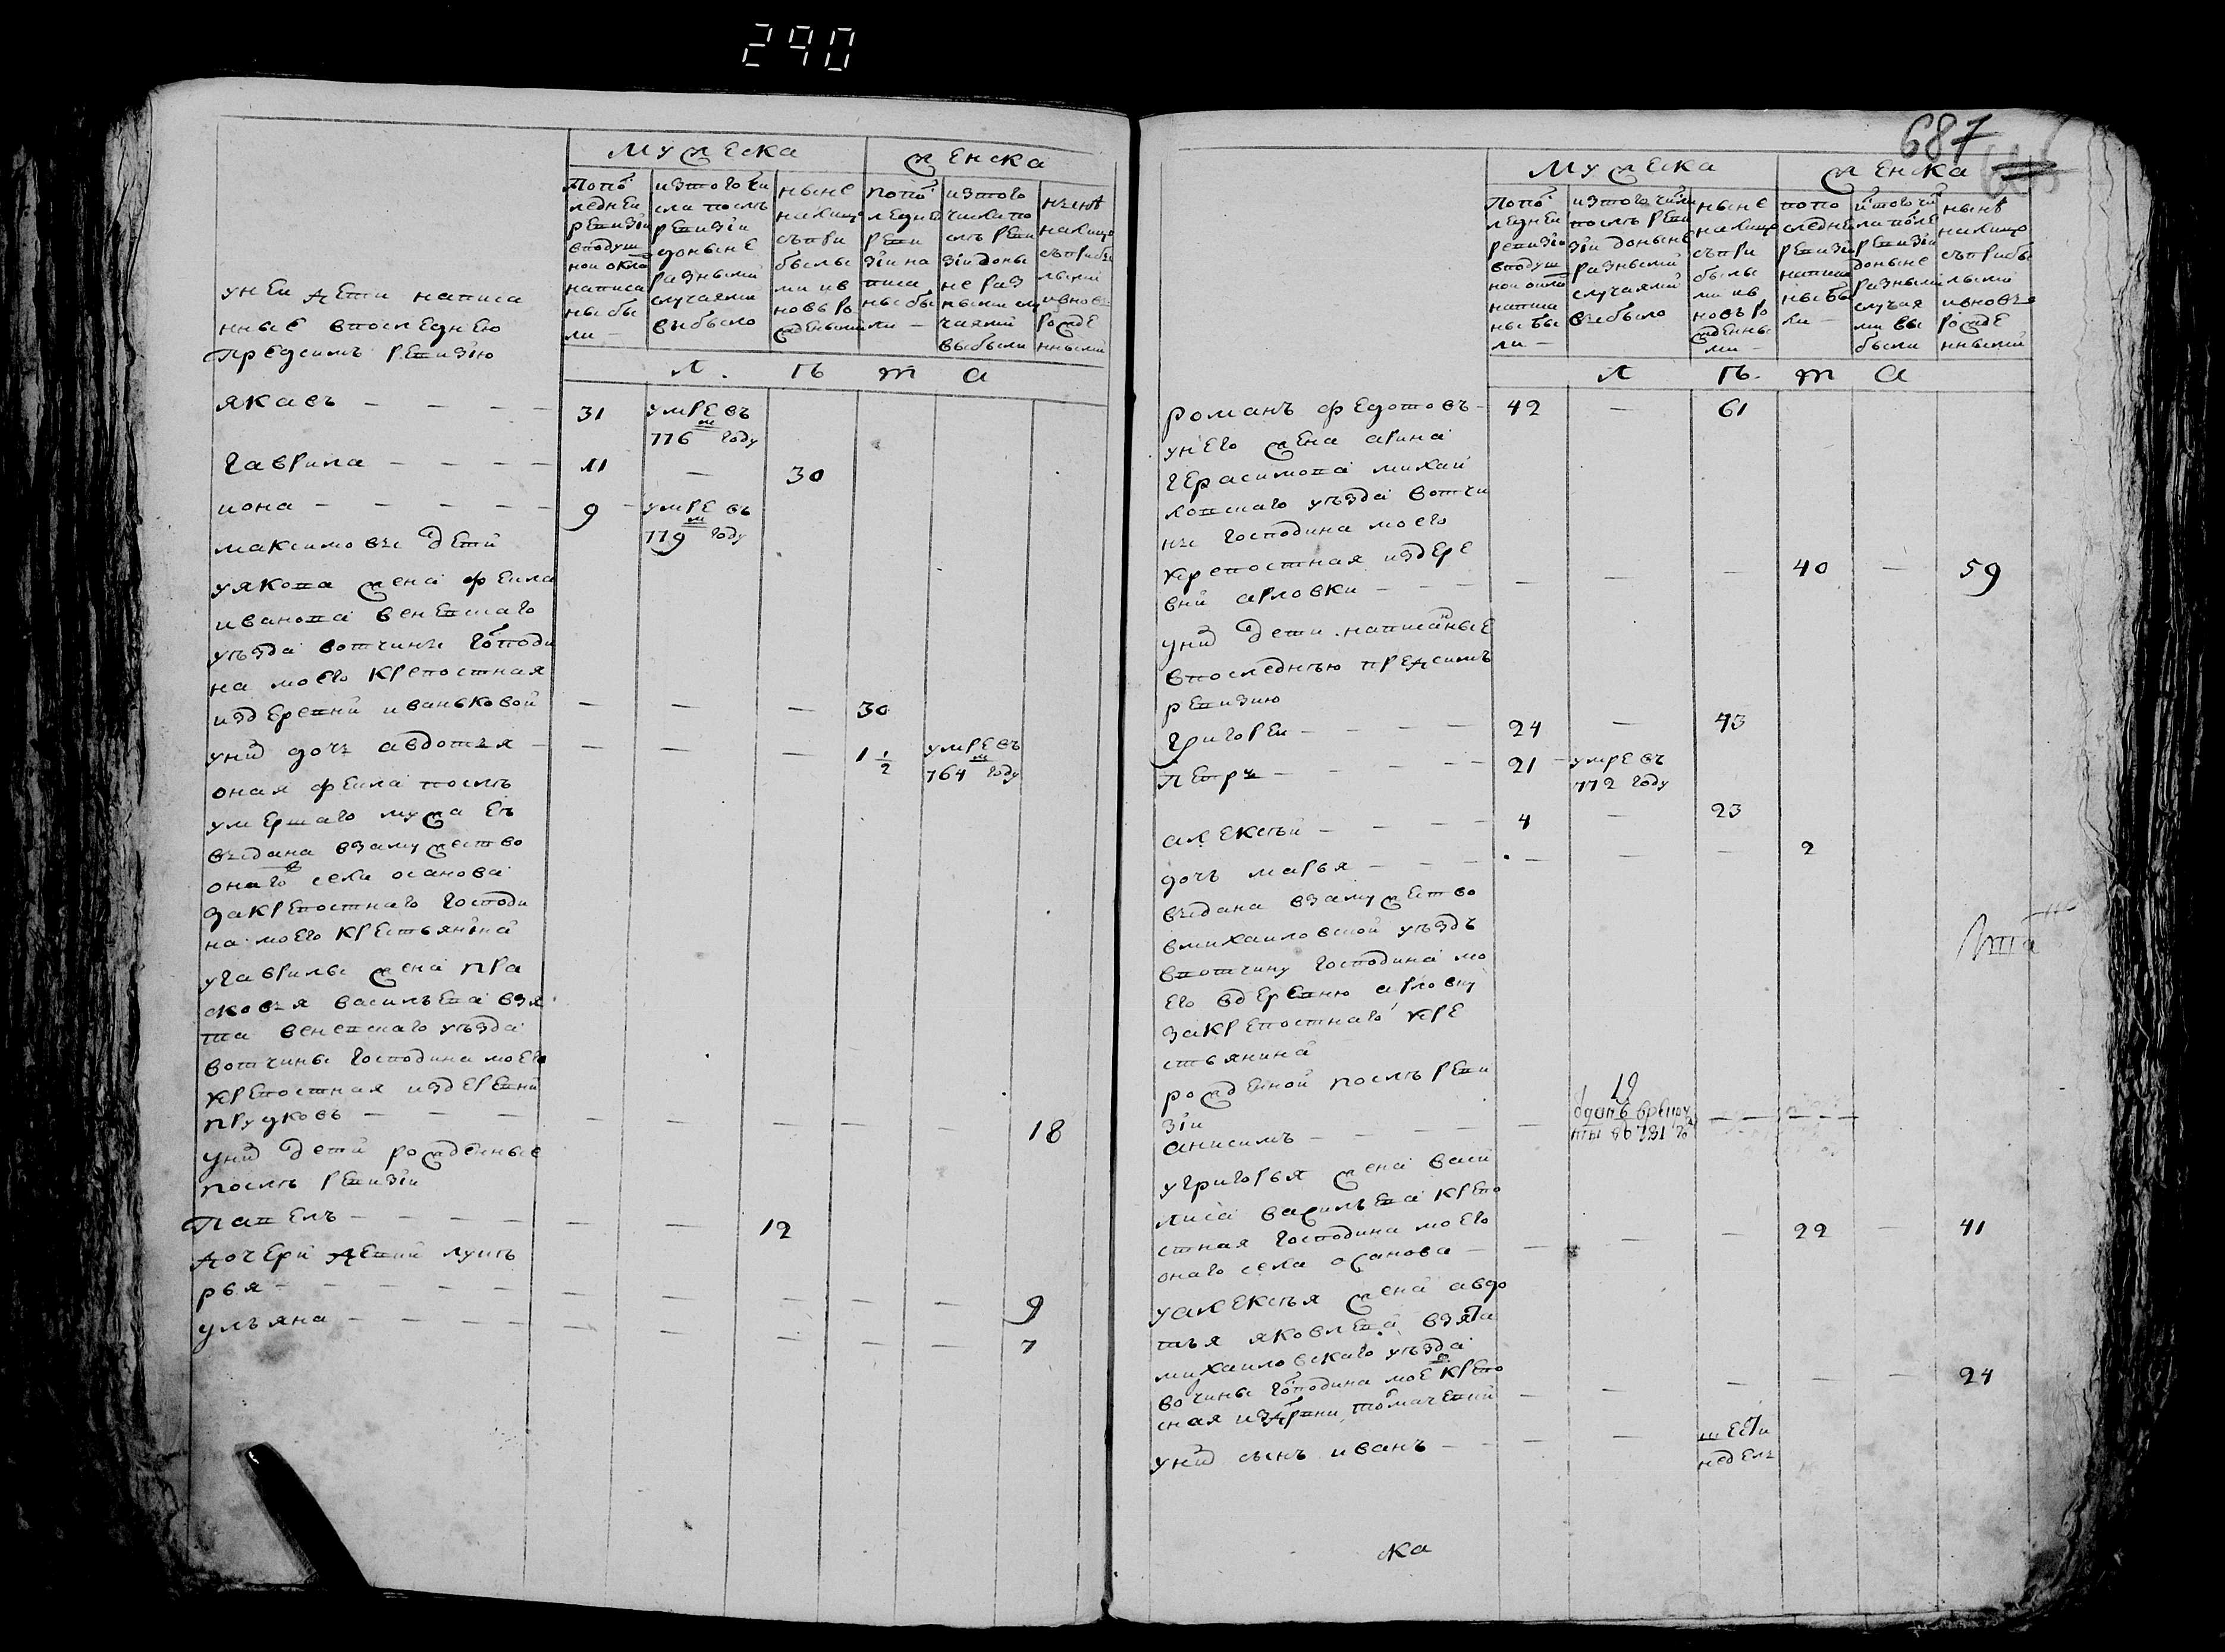 290
мужеска женска
Попо
ледней
ревизіи
вподуш
ной окла
написа
ны бы
ли —
изтого чи
сла послѣ
ревизіи
доныне
разными
случаями
выбыло
ныне
налицо
съпри
былы
ми ив
новь ро
жденными
попо
ледней
реви
зіи на
писа
ны бы
ли —
изтого
числа по
слѣ реви
зіи доны
не раз
ными слу
чаями
выбыли
нынѣ
налицо
съприбы
лыми
ивновь
рожде
нными
л. ѣ т а
уней дети написа
нные впоследнею
предсимъ ревизію
яковъ — — — — 31 умре въ
776 м году
гаврила — — — — 11 — 30
иона — — — — — 9 — умре въ
779 м году
максимовы дети
уякова жена феκла
иванова веневского
уѣзда вотчины господи
на моего крепостная
издеревни иваньковой — — — 30
унид дочь авдотья — — — — 1 1/2 умре въ
764 м году
оная феκла послѣ
умершаго мужа еѣ
выдана взамужество
онаго села осанова
закрепостнаго господи
на моего крестьянина
угаврилы жена пра
сковья васильева взя
та веневскаго уѣзда
вотчины господина моего
крепостная издеревни
прудковъ — — — — — — — — — 18
унид дети рожденные
послѣ ревизіи
Павелъ — — — — — — 12
дочери девки лукѣ
рья — — — — — — — — — — — 9
ульяна — — — — — — — — — 7
687
мужеска женска
Попо
ледней
ревизіи
вподуш
ной окла
написа
ны бы
ли —
изтого числа
послѣ реви
зіи доныне
разными
случаями
выбыло
ныне
налицо
съпри
былы
ми ив
новъ ро
жденны
ми —
попо
следней
ревизіи
написа
ны бы
ли —
истого чи
ла послѣ
ревизіи
доныне
разными
случая
ми вы
были
нынѣ
налицо
съприбы
лыми
ивновь
рожде
нными
л ѣ. т а
романъ федотовъ — 42 — 61
унего жена арина
герасимова михай
ловскаго уѣзда вотчи
ны господина моего
крепостная издере
вни арловки — — — — — — 40 — 59
унид дети написанные
впоследнѣю предсимъ
ревизию
григореи — — — — 24 — 43
петръ — — — — — 21 — умре въ
772 году
алексѣй — — — — 4 — 23
дочь марья — — — — — — — 2
выдана взамужество
вмихаиловской уѣздъ
вотчину господина мо
его вдеревню арловку
закрепостнаго кре
стьянина
рожденной послѣ реви
зіи
анисимъ — — — — —
19
уригорья жена васи
лиса васильева крепо
стная господина моего
онаго села осанова — — — — 22 — 41
уалексѣя жена авдо
тья яковлева взята
михаиловскаго уѣзда
вочины господина мое крепо
сная издерѣвни — — — — — — 24
унид сынъ иванъ — — — — шести
недель
ка